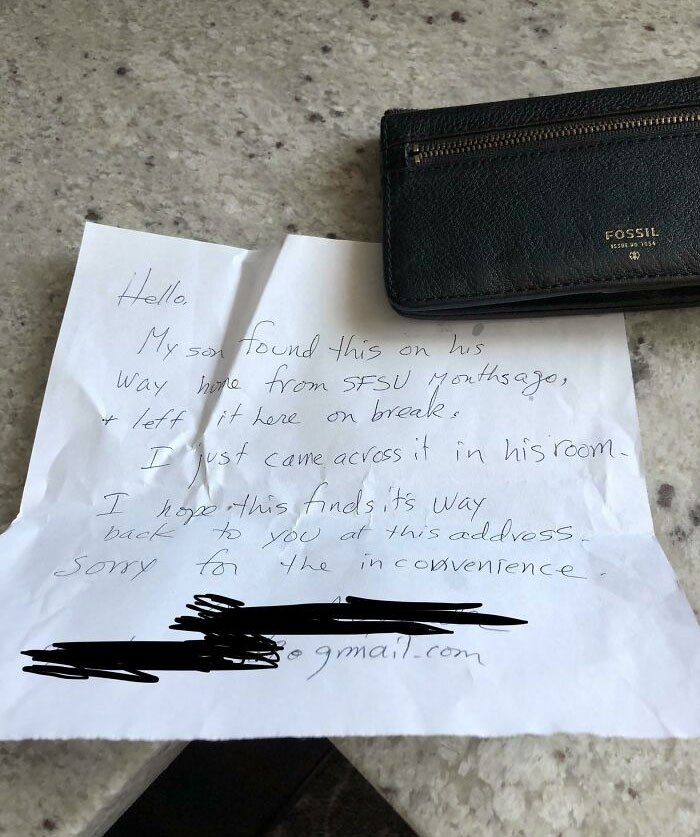 FOSSIL
ISSUE NO. 1954
Hello,
My son found this on his
way home from SFSU Months ago,
+ left it here on break.
I just came across it in his room.
I hope this finds it's way
back to you at this address.
Sorry for the inconvenience.
@gmail.com